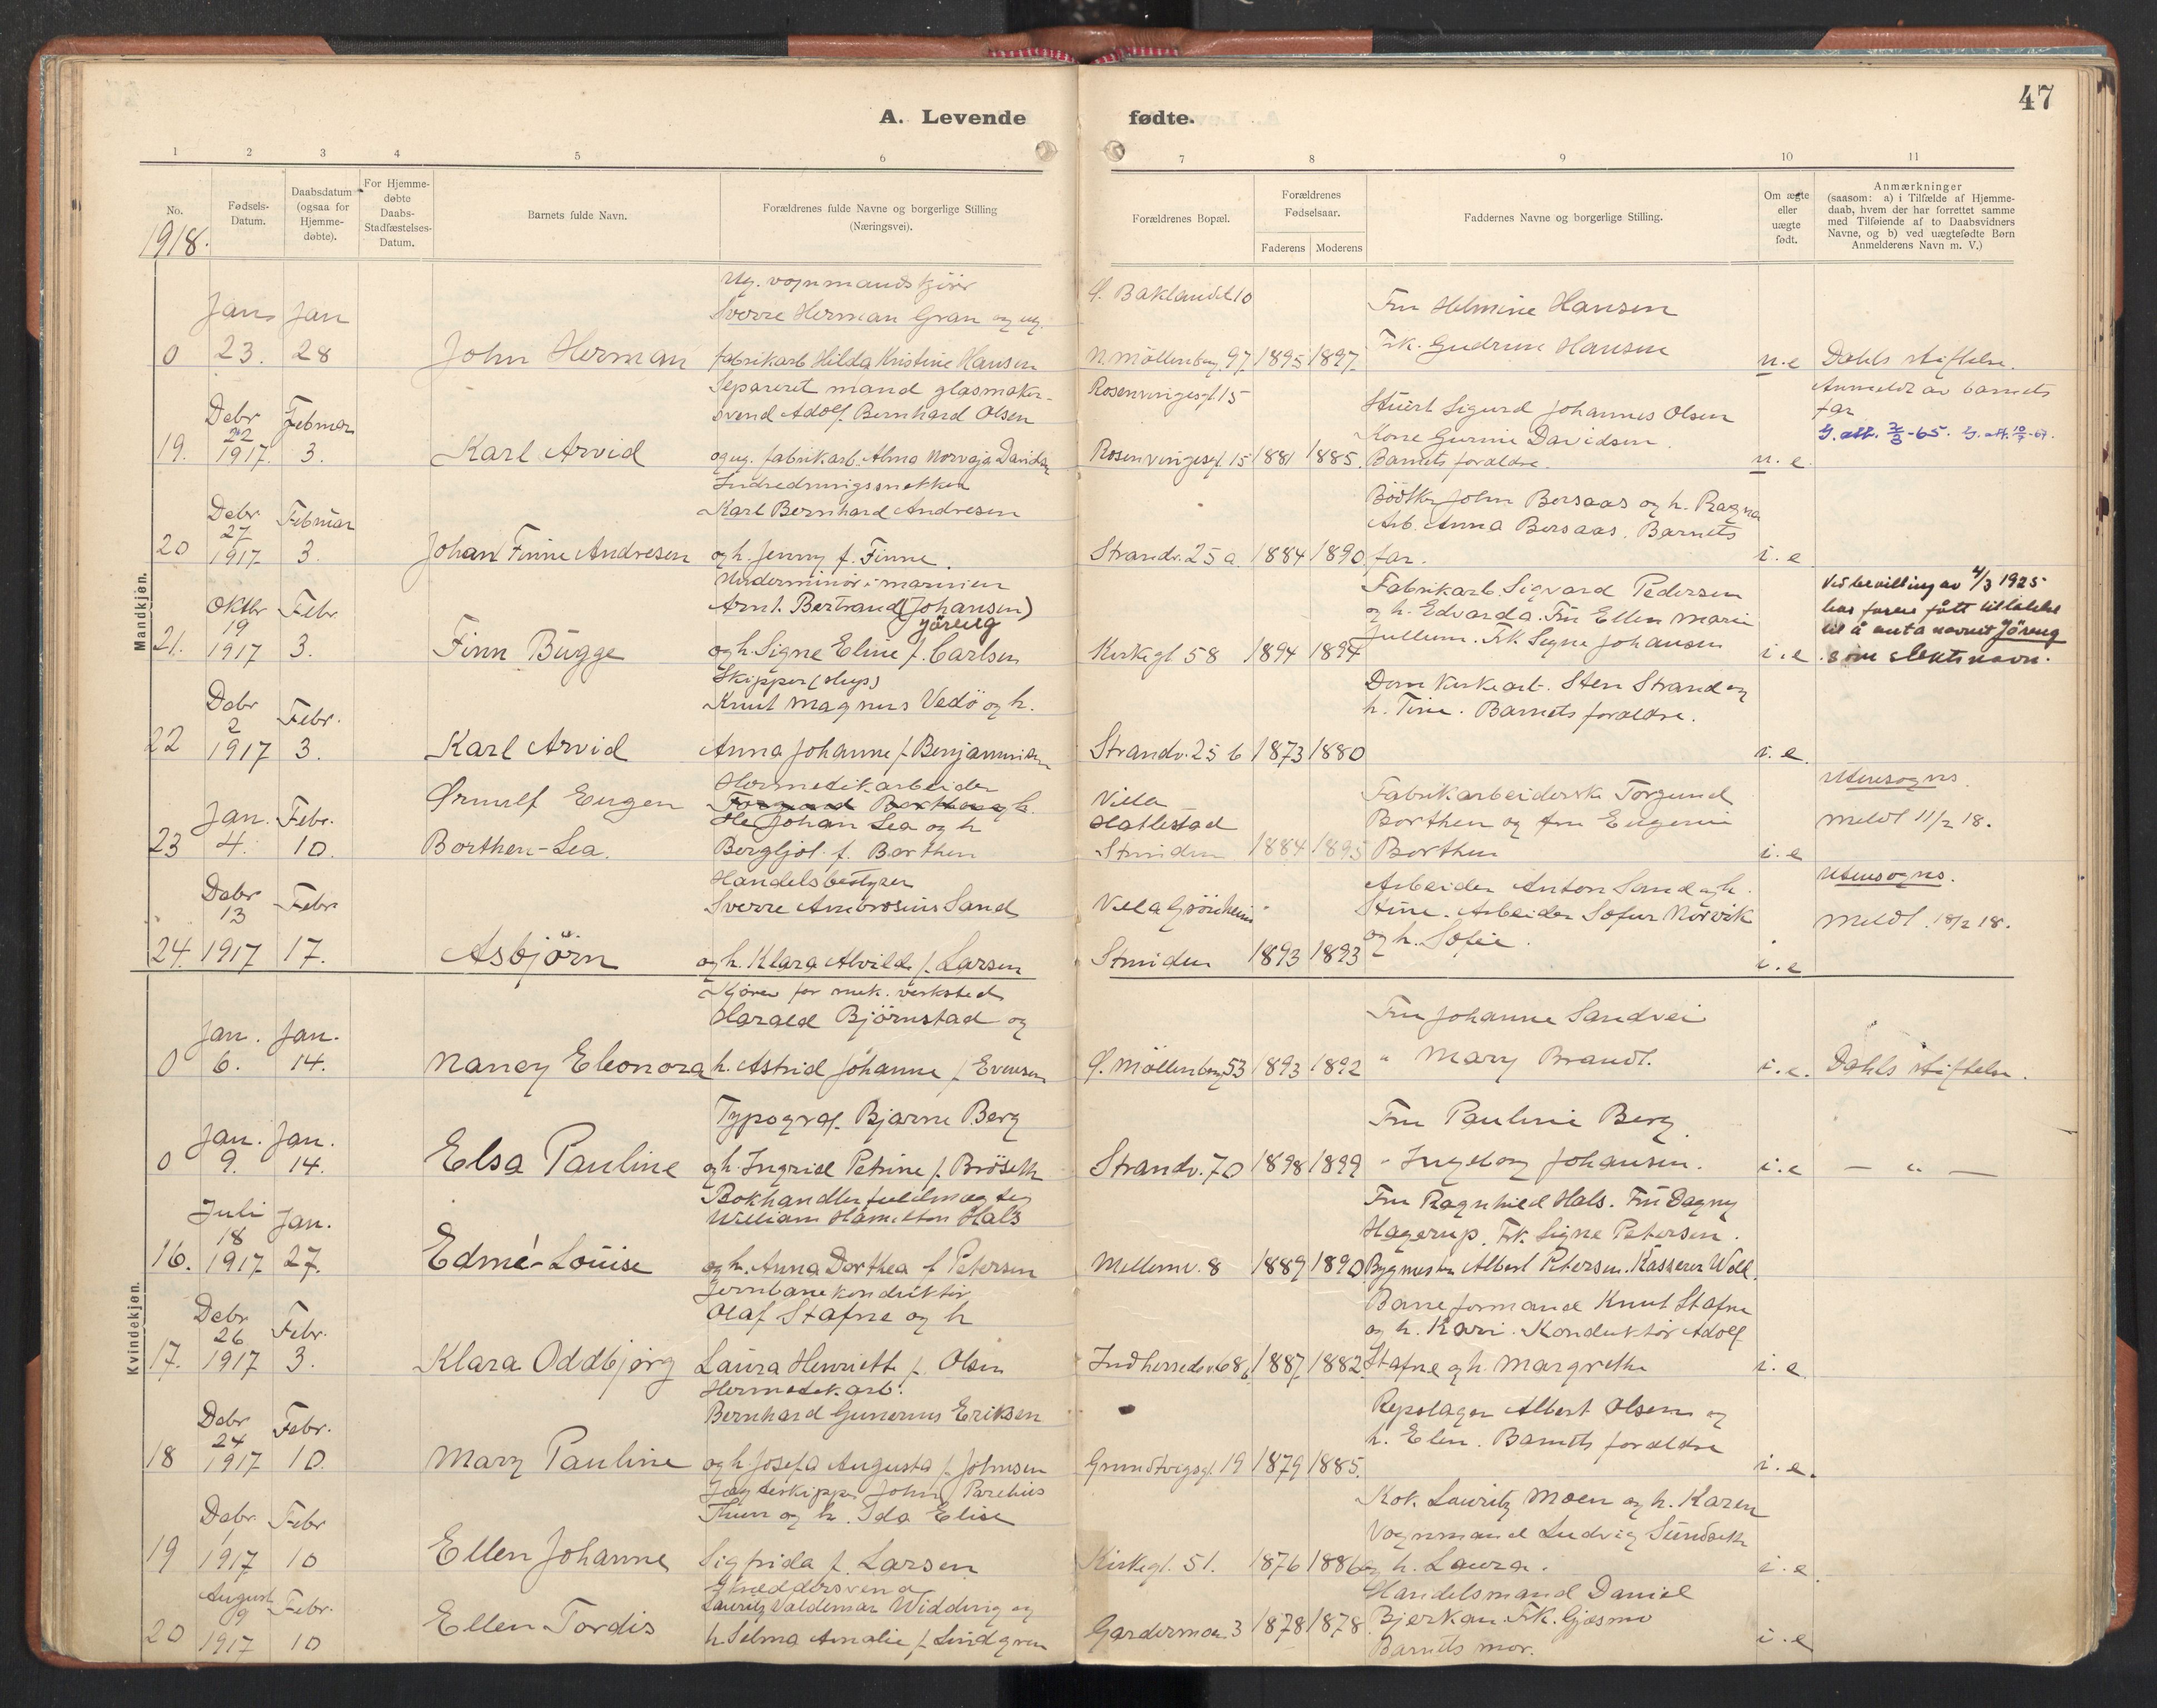 47
A. Levende fødte.
1 2 3 4 5 6 7 8 9 10 11
No.
Fødsels-Datum.
Daabsdatum (ogsaa for Hjemme-døbte).
For Hjemme-døbte Daabs-Stadfæstelses-Datum.
Barnets fulde Navn.
Forældrenes fulde Navne og borgerlige Stilling (Næringsvei).
Forældrenes Bopæl.
Forældrenes Fødselsaar.
Faderens Moderens
Faddernes Navne og borgerlige Stilling.
Om ægte eller uægte født.
Anmærkninger
(saasom: a) i Tilfælde af Hjemme-
daab, hvem der har forrettet samme
med Tilføiende af to Daabsvidners
Navne, og b) ved uægtefødte Børn
Anmelderens Navn m. V.)
1918.
Mandkjøn.
Ug. vognmandskjörer
Ö. Baklandet 10
Jan. Jan
Sverre Herman Gran og ug.
Fru Helmine Hansen
0 23. 28 John Herman fabrikarb. Hilda Kristine Hansen N. Möllenberg 97 1895 1897 Frk. Gudrun Hansen u.e Dahls stiftelse.
Separeret mand glasmaker-
Rosenvingesgt 15
Anmeldt av barnets
Debr Februar
svend Adolf Bernhard Olsen
Stuert Sigurd Johannes Olsen
far
22
Kone Gurine Davidsen.
19. 1917. 3. Karl Arvid og ug. fabrikarb. Alma Norvaja Davidsen Rosenvingesgt. 15 1881 1885 Barnets forældre. u.e
Indredningssnekker
Debr Februar
Karl Bernhard Andresen
Bödker John Bersaas og h. Ragna
27
Arb. Anna Bersaas. Barnets
20 1917 3. Johan Finne Andresen og h. Jenny f. Finne. Strandv. 25 a 1884 1890 far. i.e
Underminör i marinen
Oktbr Febr.
Arnt. Bertrand (Johansen)
Jöreng
Fabrikarb. Sigvard Pedersen
og h. Edvarda. Fru Ellen Marie
Ved bevilling av 4/3 1925
har faren fått tillatelse
19
til å anta navnet Jöreng
21. 1917 3. Finn Bugge og h. Signe Eline f. Carlsen Kirkegt 58 1894 1894 Jullum. Frk. Signe Johansen i.e som slektsnavn.
Skipper (slups)
Debr Febr.
Knut Magnus Vedö og h.
Domkirkearb. Sten Strand og
2
h. Tine. Barnets forældre.
22 1917 3. Karl Arvid Anna Johanne f. Benjaminsen Strandv. 25 b 1873 1880 i.e
Hermetikarbeider
Utensogns
Jan. Febr.
Ørnulf Eugen
Ole Johan Lea og h
Villa Hallestad
Fabrikarbeiderske Torgund
Borthen og fru Eugenie
Meldt 11/2 18.
23 4. 10. Borthen-Lea. Bergljot f. Borthen Strinden 1884 1895 Borthen i.e
Handelsbestyrer
Utensogns.
Debr Febr
Sverre Ambrosius Sand
Arbeider Anton Sand og h.
13
Stine. Arbeider Sofus Nörvik
Meldt. 18/2 18.
24. 1917 17. Asbjörn og h. Klara Alvilde f. Larsen Strinden 1893 1893 og h. Sofie. i.e
Kvindekjøn.
Kjörer for mek. verksted
Jan. Jan.
Harald Björnstad og
Fru Johanne Sandvei
0 6. 14. Nancy Eleonora h. Astrid Johanne f. Evensen Ö. Möllenberg 53 1893 1892 " Mary Brandt. i.e. Dahls stiftelse.
Jan. Jan.
Typograf Bjarne Berg
Fru Pauline Berg.
0 9. 14. Elsa Pauline og h. Ingrid Petrine f. Bröseth Strandv. 70 1898 1899 " Ingeborg Johansen. i.e — " —
Bokhandlerfuldmægtig
Juli Jan.
William Hamilton Hals
Fru Ragnhild Hals. Fru Dagny
18
Hagerup. Frk. Signe Petersen.
16. 1917 27. Edmé-Louise og h. Anna Dorthea f Petersen Mellemv. 8 1889 1890 Bygmester Albert Petersen. Kasserer Woll.
Jernbanekonduktör
Debr Febr.
Olaf Stafne og h
Baneformand Knut Stafne
26
og h. Kari. Konduktör Adolf
17. 1917 3. Klara Oddbjørg Laura Henriette f. Olsen Indherredsv. 68 b 1887 1882 Stafne og h. Margrethe i.e
Hermetikarb.
Debr Febr.
Bernhard Gunerius Eriksen
Repslager Albert Olsen og
24
h. Elen. Barnets forældre
18 1917 10. Mary Pauline og h. Josefa Augusta f. Johnsen Grundtvigsgt. 19 1879 1885. i.e.
Jægtskipper John Parelius
Debr Febr
Thun og h. Ida Elise
Kok. Lauritz Moen og h. Karen
1
Vognmand Ludvig Sundseth
19 1917 10 Ellen Johanne Sigfrida f. Larsen Kirkegt. 51. 1876 1886 og h. Laura. i.e.
Skræddersvend
August Febr.
Lauritz Valdemar Widding og
Handelsmand Daniel
9
Bjerkan. Frk. Gjæsmo
20 1917 10 Ellen Tordis h Selma Amalie f. Lindgren Gardermoen 3 1878 1878 Barnets mor. i.e